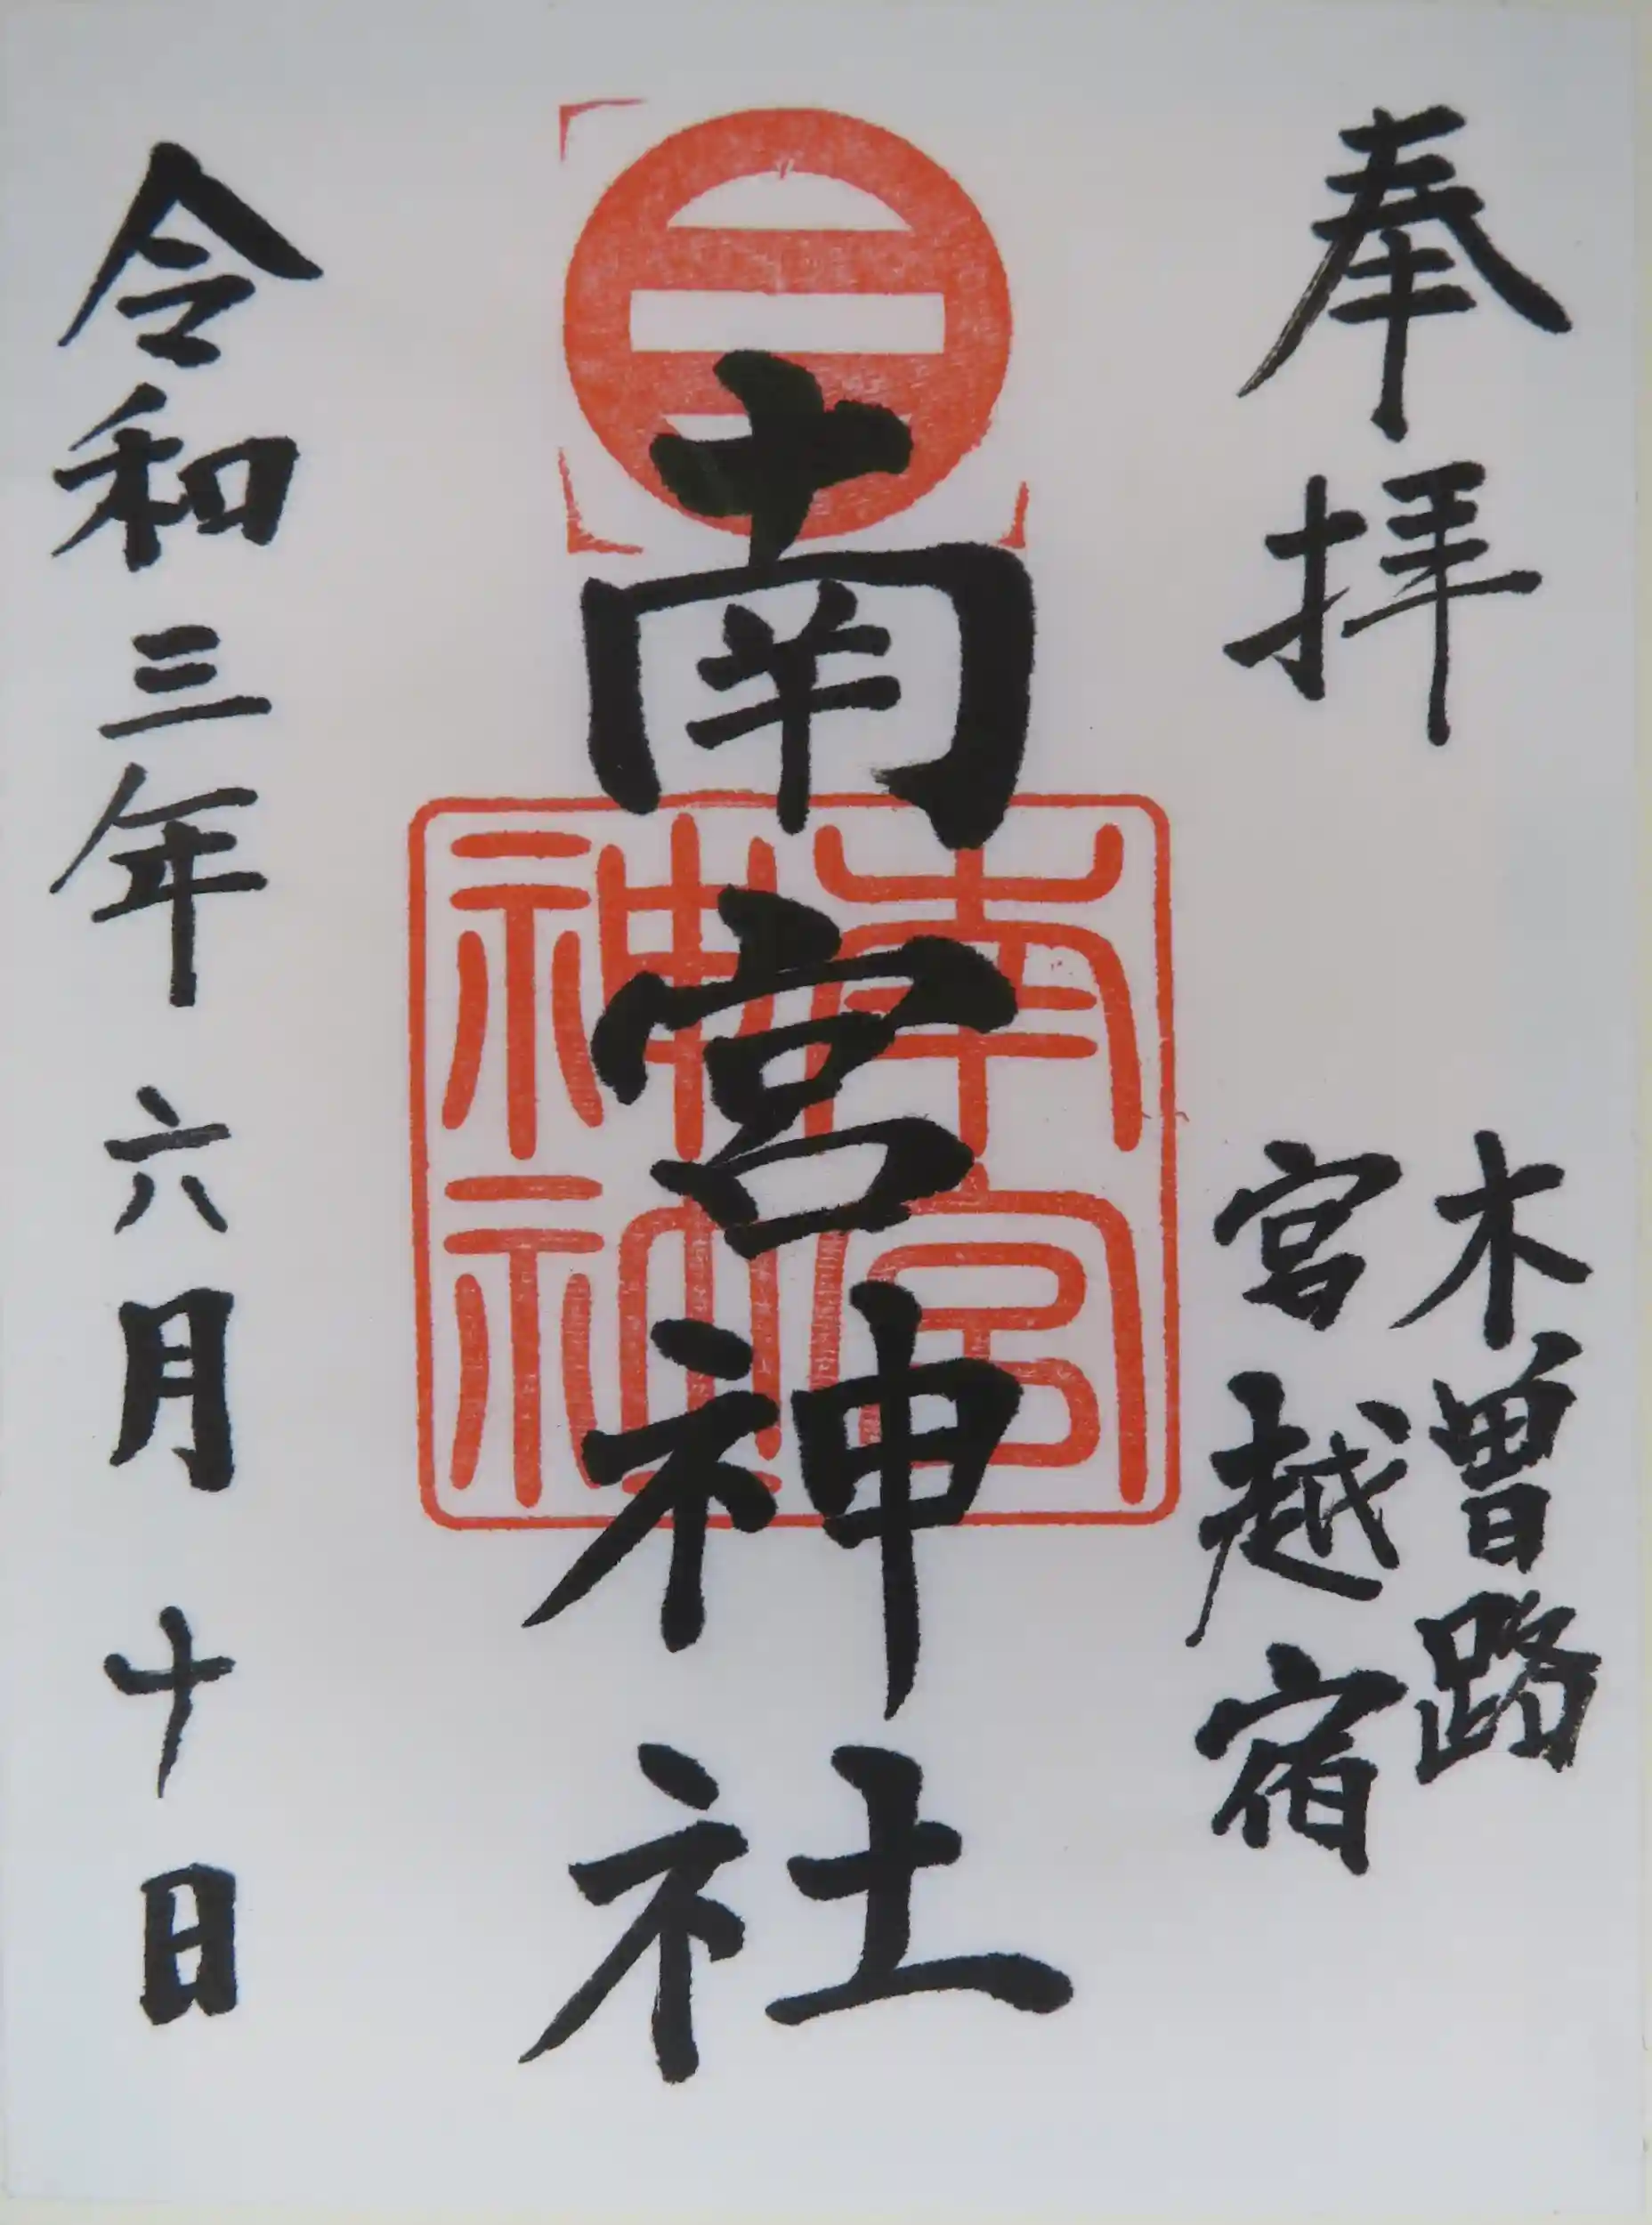 奉拝
木曽路
宮越宿
南宮神社
南宮
神社
令和三年六月十日